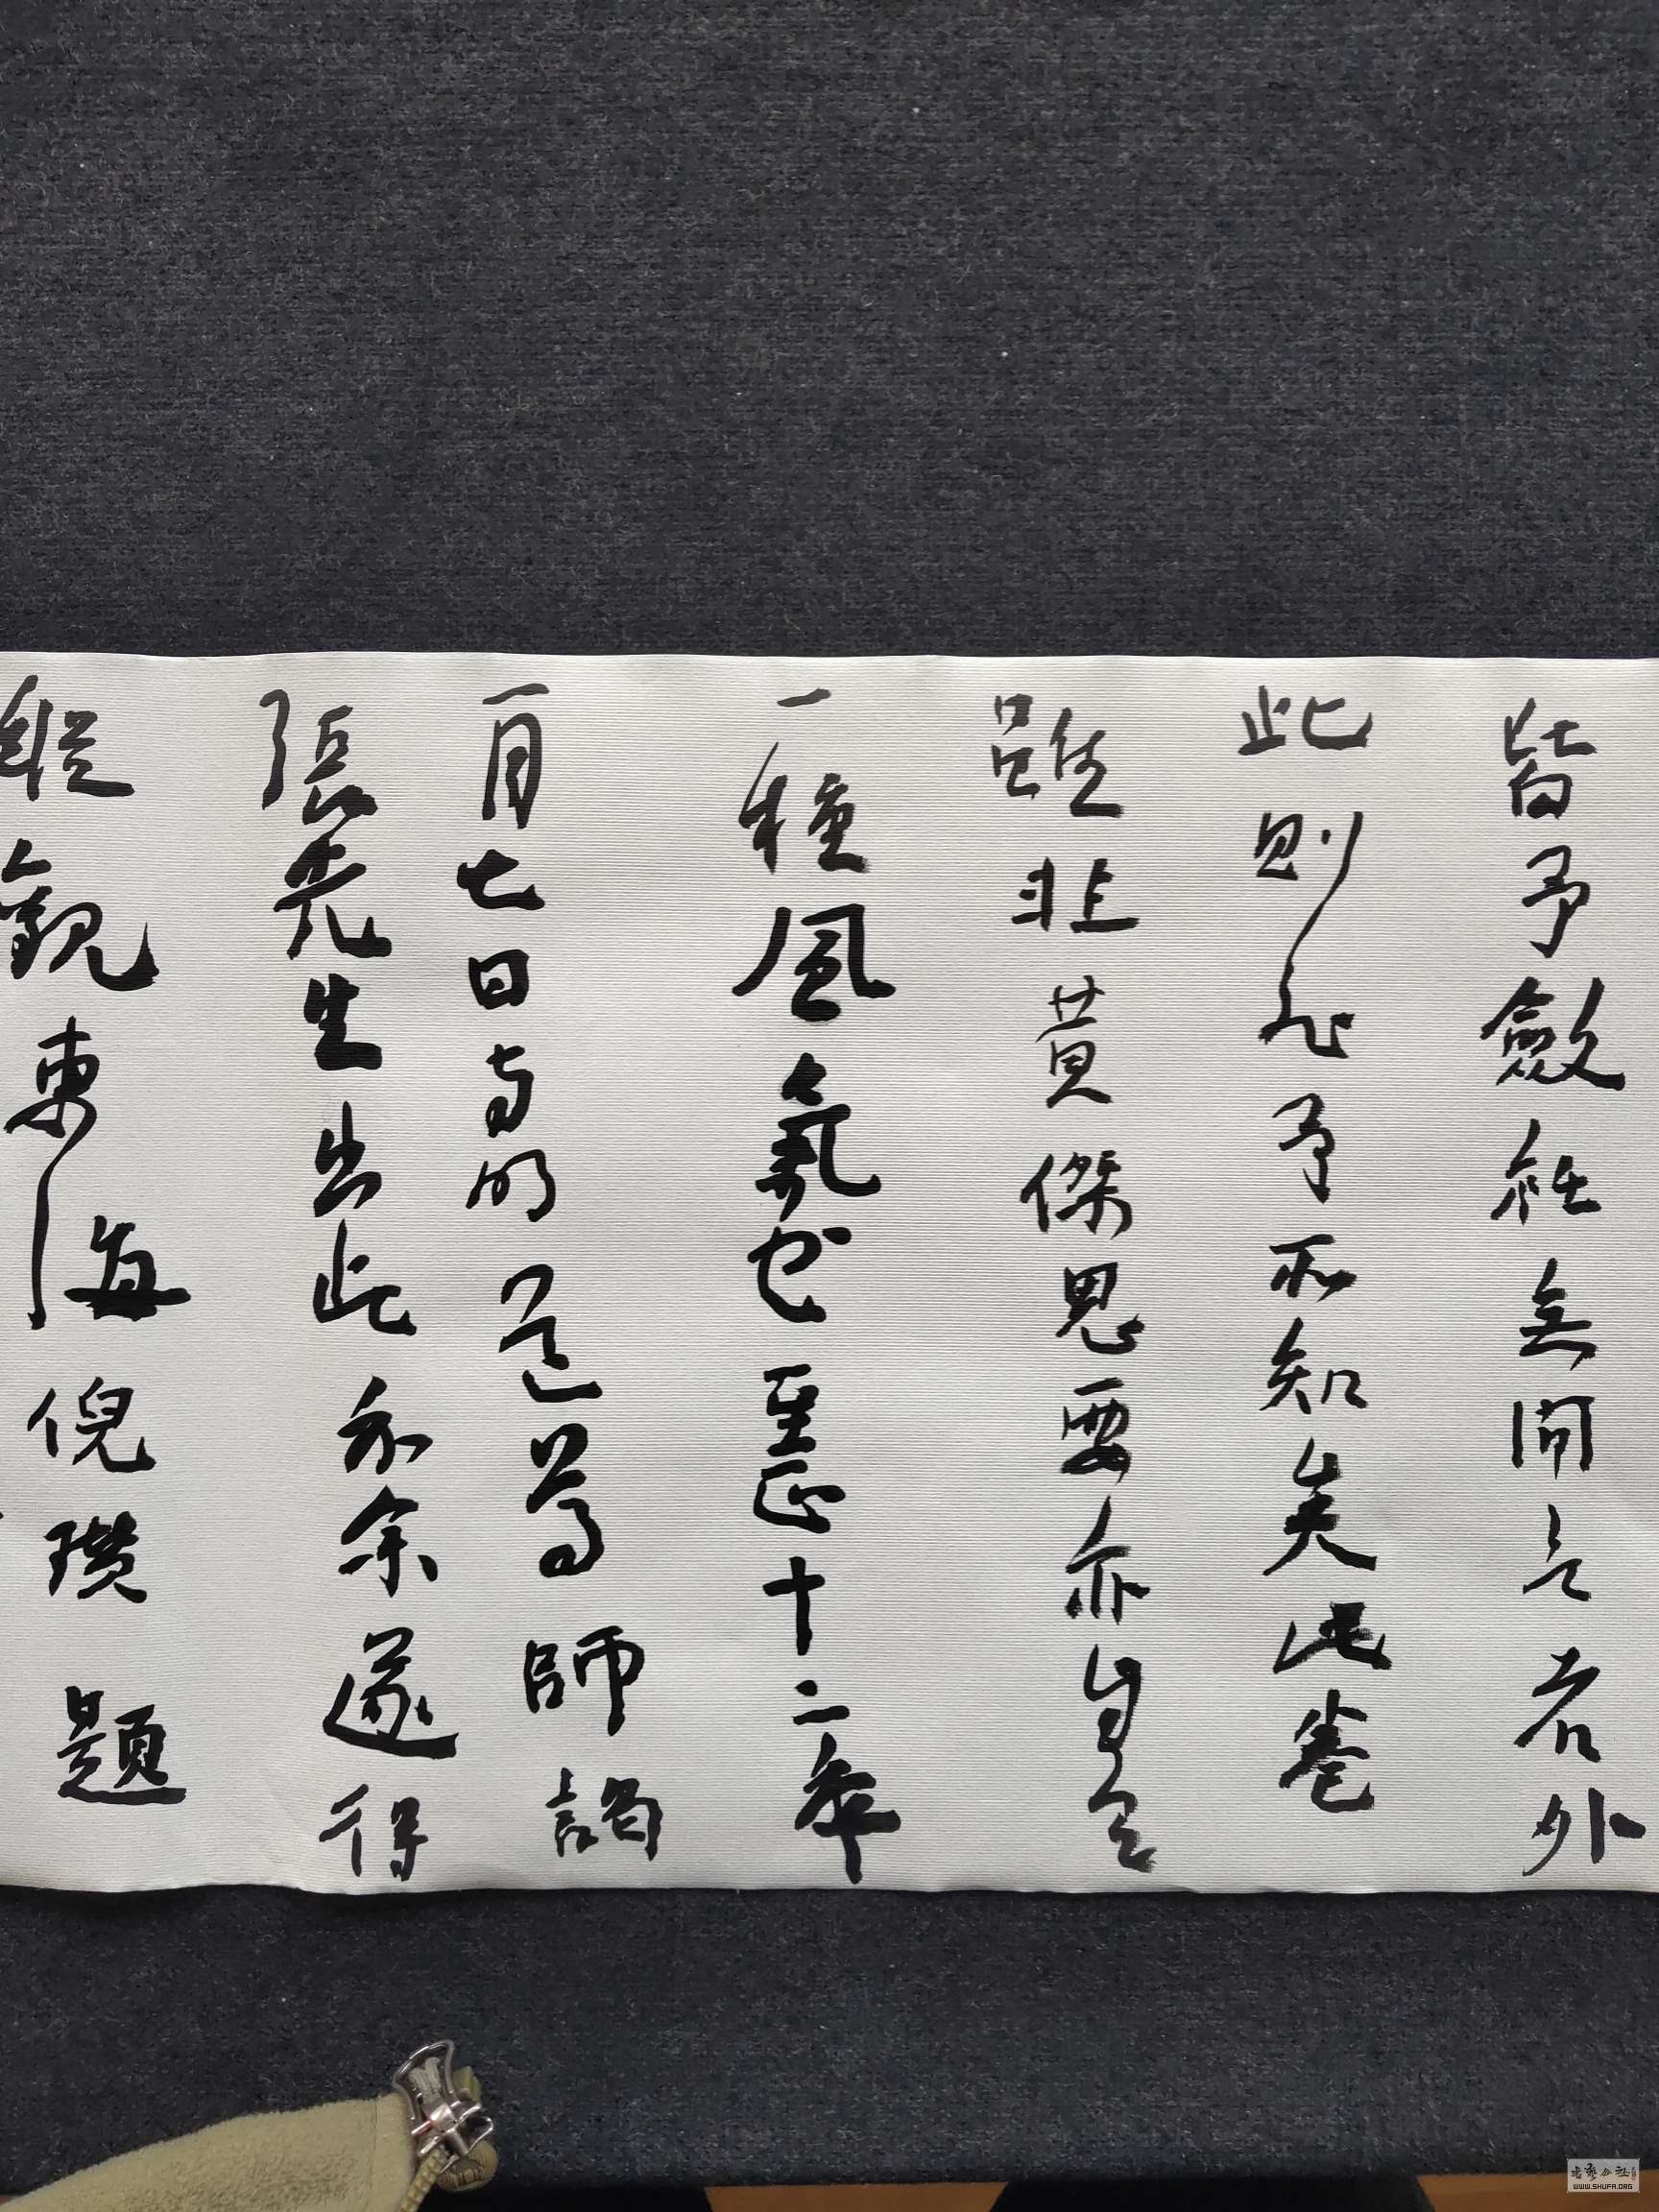 皆予斂衽無間言者外
此則非予所知矣此卷
雖非黃傑思要亦自有
一種風氣也至正十二年
一月七日與明道尊師謁
張先生出此示余遂得
縱觀東海倪瓚題
WWW.SHUFA.ORG